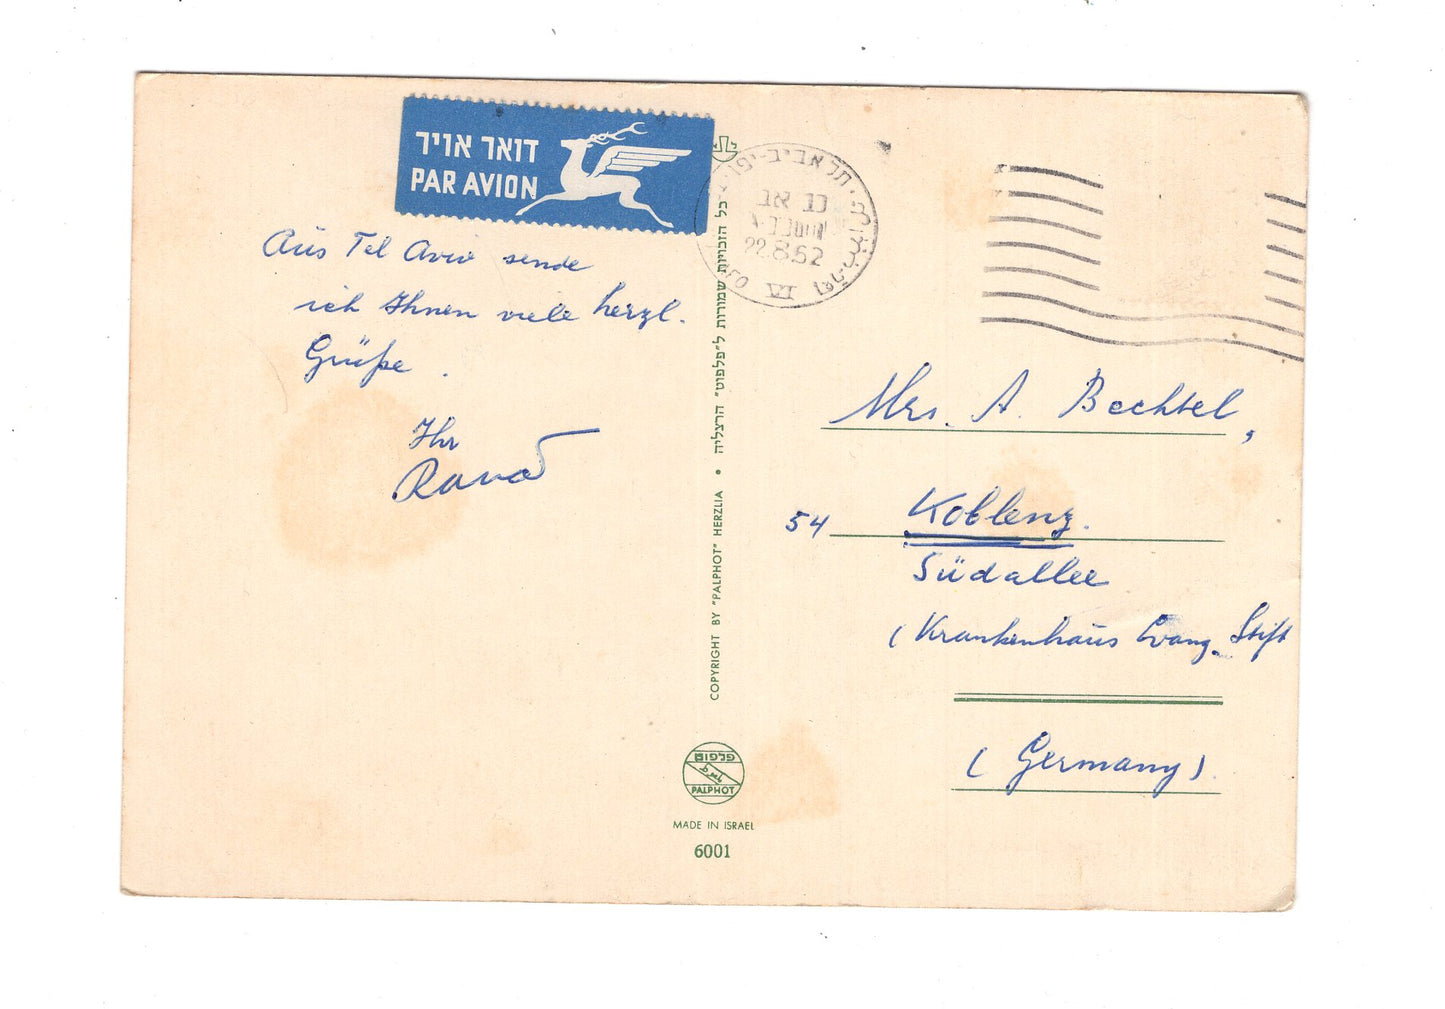 דואר אויר
PAR AVION
Aus Tel Aviv sende
ich Ihnen viele herzl.
Grüße.
Ihr
כל הזכויות שמורות ל"פלפוט" הרצליה • COPYRIGHT BY "PALPHOT" HERZLIA
פלפוט
PALPHOT
MADE IN ISRAEL
6001
תל אביב-יפו
22.8.62
VI
Mrs. A. Bechtel,
54 Koblenz.
Südallee
(Krankenhaus Evang. Stift
(Germany).